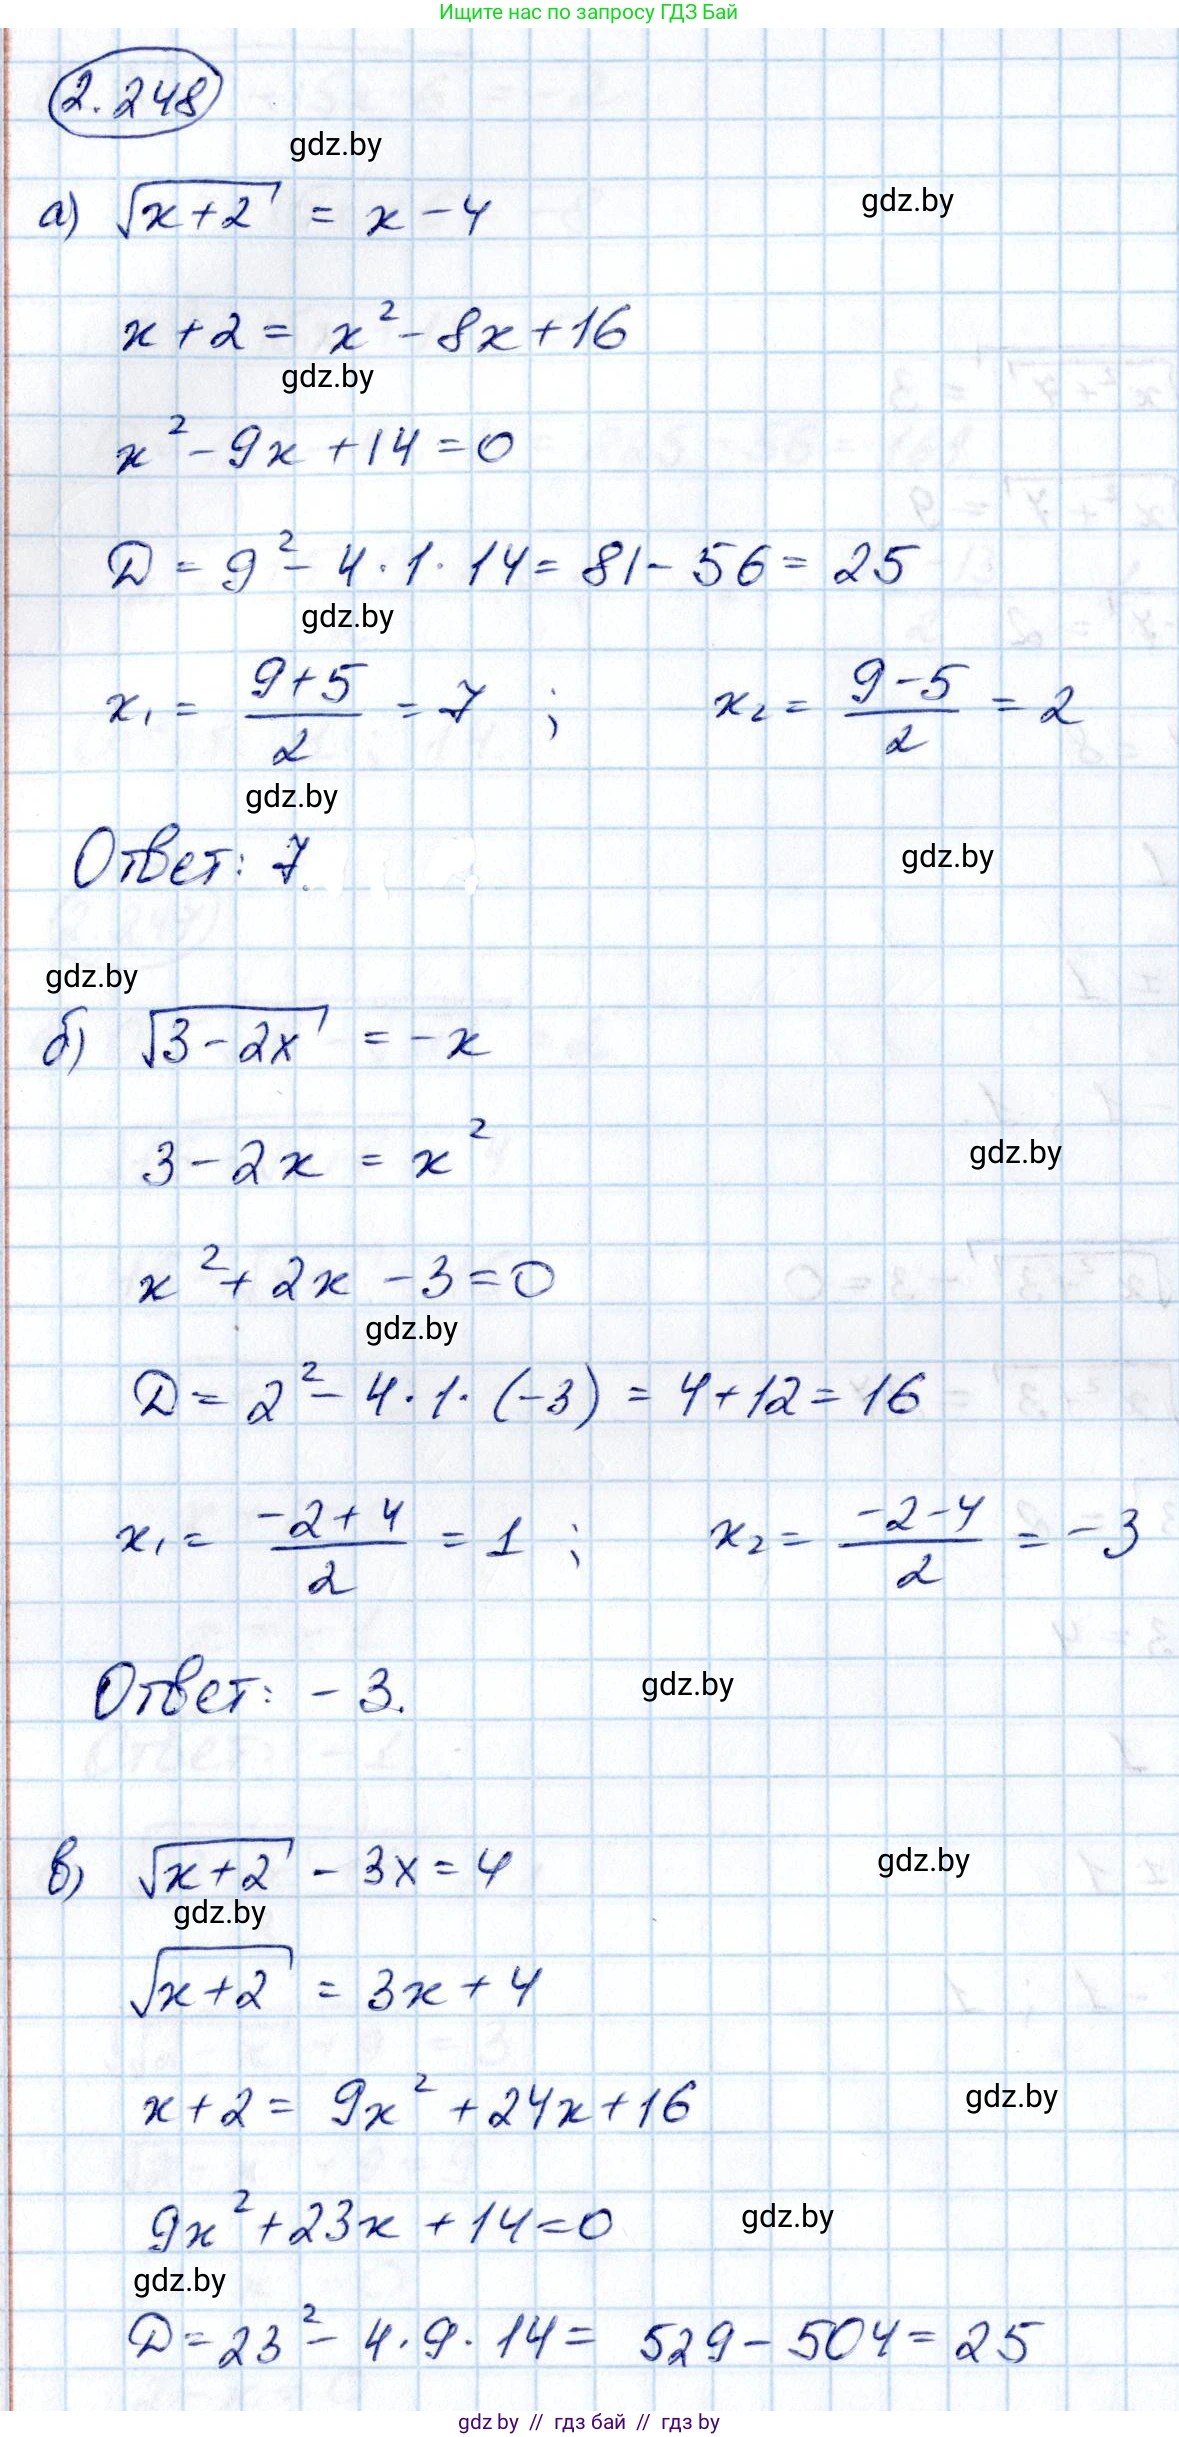 Ищите нас по запросу ГДЗ Бай
2.248
gdz.by
а) √(x+2) = x - 4
gdz.by
x + 2 = x² - 8x + 16
gdz.by
x² - 9x + 14 = 0
D = 9² - 4 · 1 · 14 = 81 - 56 = 25
gdz.by
x₁ = (9+5)/2 = 7 ; x₂ = (9-5)/2 = 2
gdz.by
Ответ: 7.
gdz.by
gdz.by
б) √(3 - 2x) = -x
3 - 2x = x²
gdz.by
x² + 2x - 3 = 0
gdz.by
D = 2² - 4 · 1 · (-3) = 4 + 12 = 16
x₁ = (-2+4)/2 = 1 ; x₂ = (-2-4)/2 = -3
Ответ: -3.
gdz.by
в) √(x+2) - 3x = 4
gdz.by
gdz.by
√(x+2) = 3x + 4
x + 2 = 9x² + 24x + 16
gdz.by
9x² + 23x + 14 = 0
gdz.by
gdz.by
D = 23² - 4 · 9 · 14 = 529 - 504 = 25
gdz by // гдз бай // гдз by